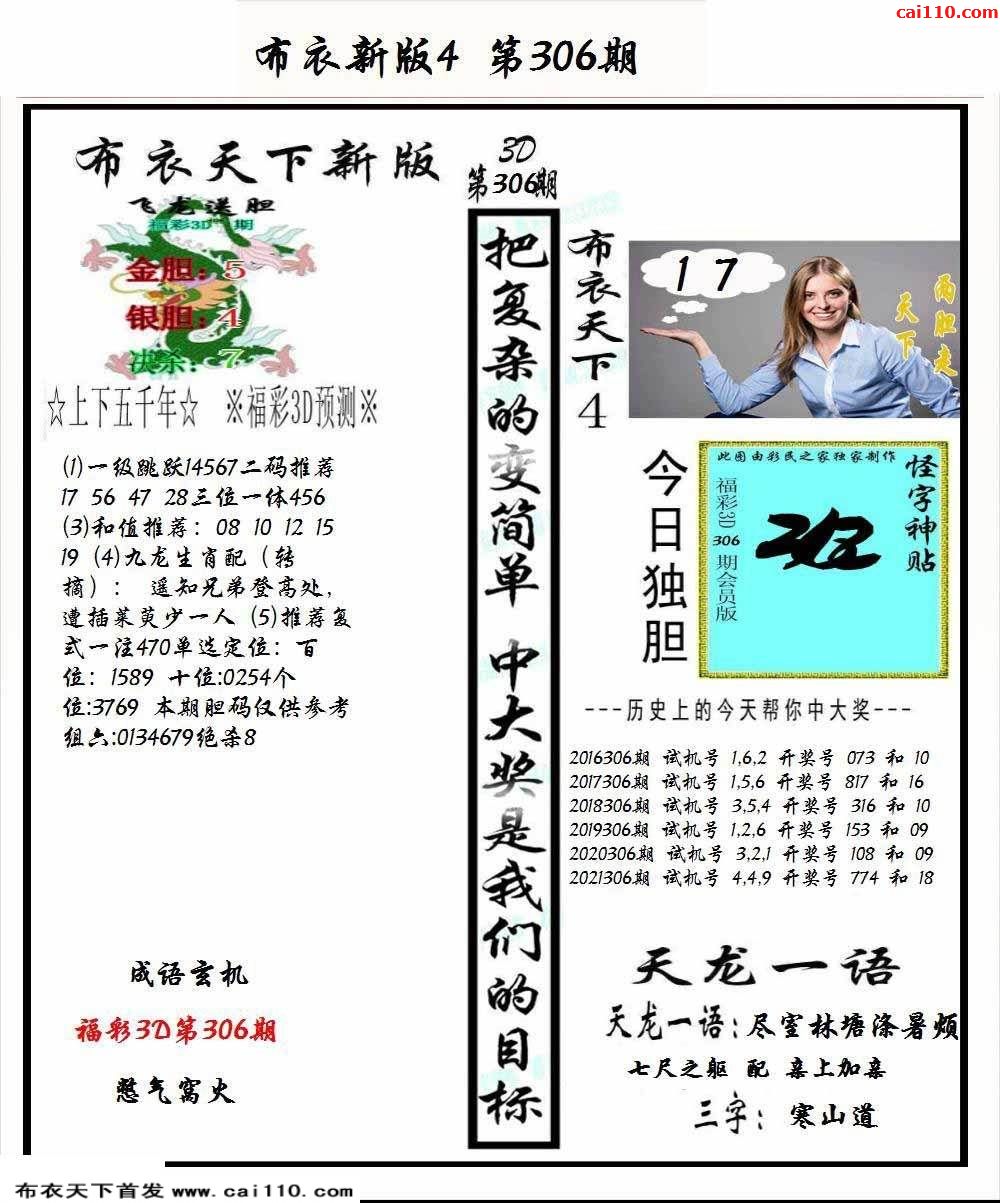 cai110.com
布衣新版4 第306期
布衣天下新版
飞龙送胆
福彩3D 期
金胆：5
银胆：4
决杀：7
☆上下五千年☆ ※福彩3D预测※
(1)一级跳跃14567二码推荐
17 56 47 28三位一体456
(3)和值推荐：08 10 12 15
19 (4)九龙生肖配（转
摘）： 遥知兄弟登高处，
遭插茱萸少一人 (5)推荐复
式一注470单选定位：百
位：1589 十位:0254个
位:3769 本期胆码仅供参考
组六:0134679绝杀8
成语玄机
福彩3D第306期
憋气窝火
3D
第306期
把复杂的变简单 中大奖是我们的目标
布衣天下4
17
两胆走
天下
今日独胆
此图由彩民之家独家制作
怪字神贴
福彩3D 306 期会员版
---历史上的今天帮你中大奖---
2016306期 试机号 1,6,2 开奖号 073 和 10
2017306期 试机号 1,5,6 开奖号 817 和 16
2018306期 试机号 3,5,4 开奖号 316 和 10
2019306期 试机号 1,2,6 开奖号 153 和 09
2020306期 试机号 3,2,1 开奖号 108 和 09
2021306期 试机号 4,4,9 开奖号 774 和 18
天龙一语
天龙一语：尽室林塘涤暑烦
七尺之躯 配 亲上加亲
三字： 寒山道
布衣天下首发 www.cai110.com